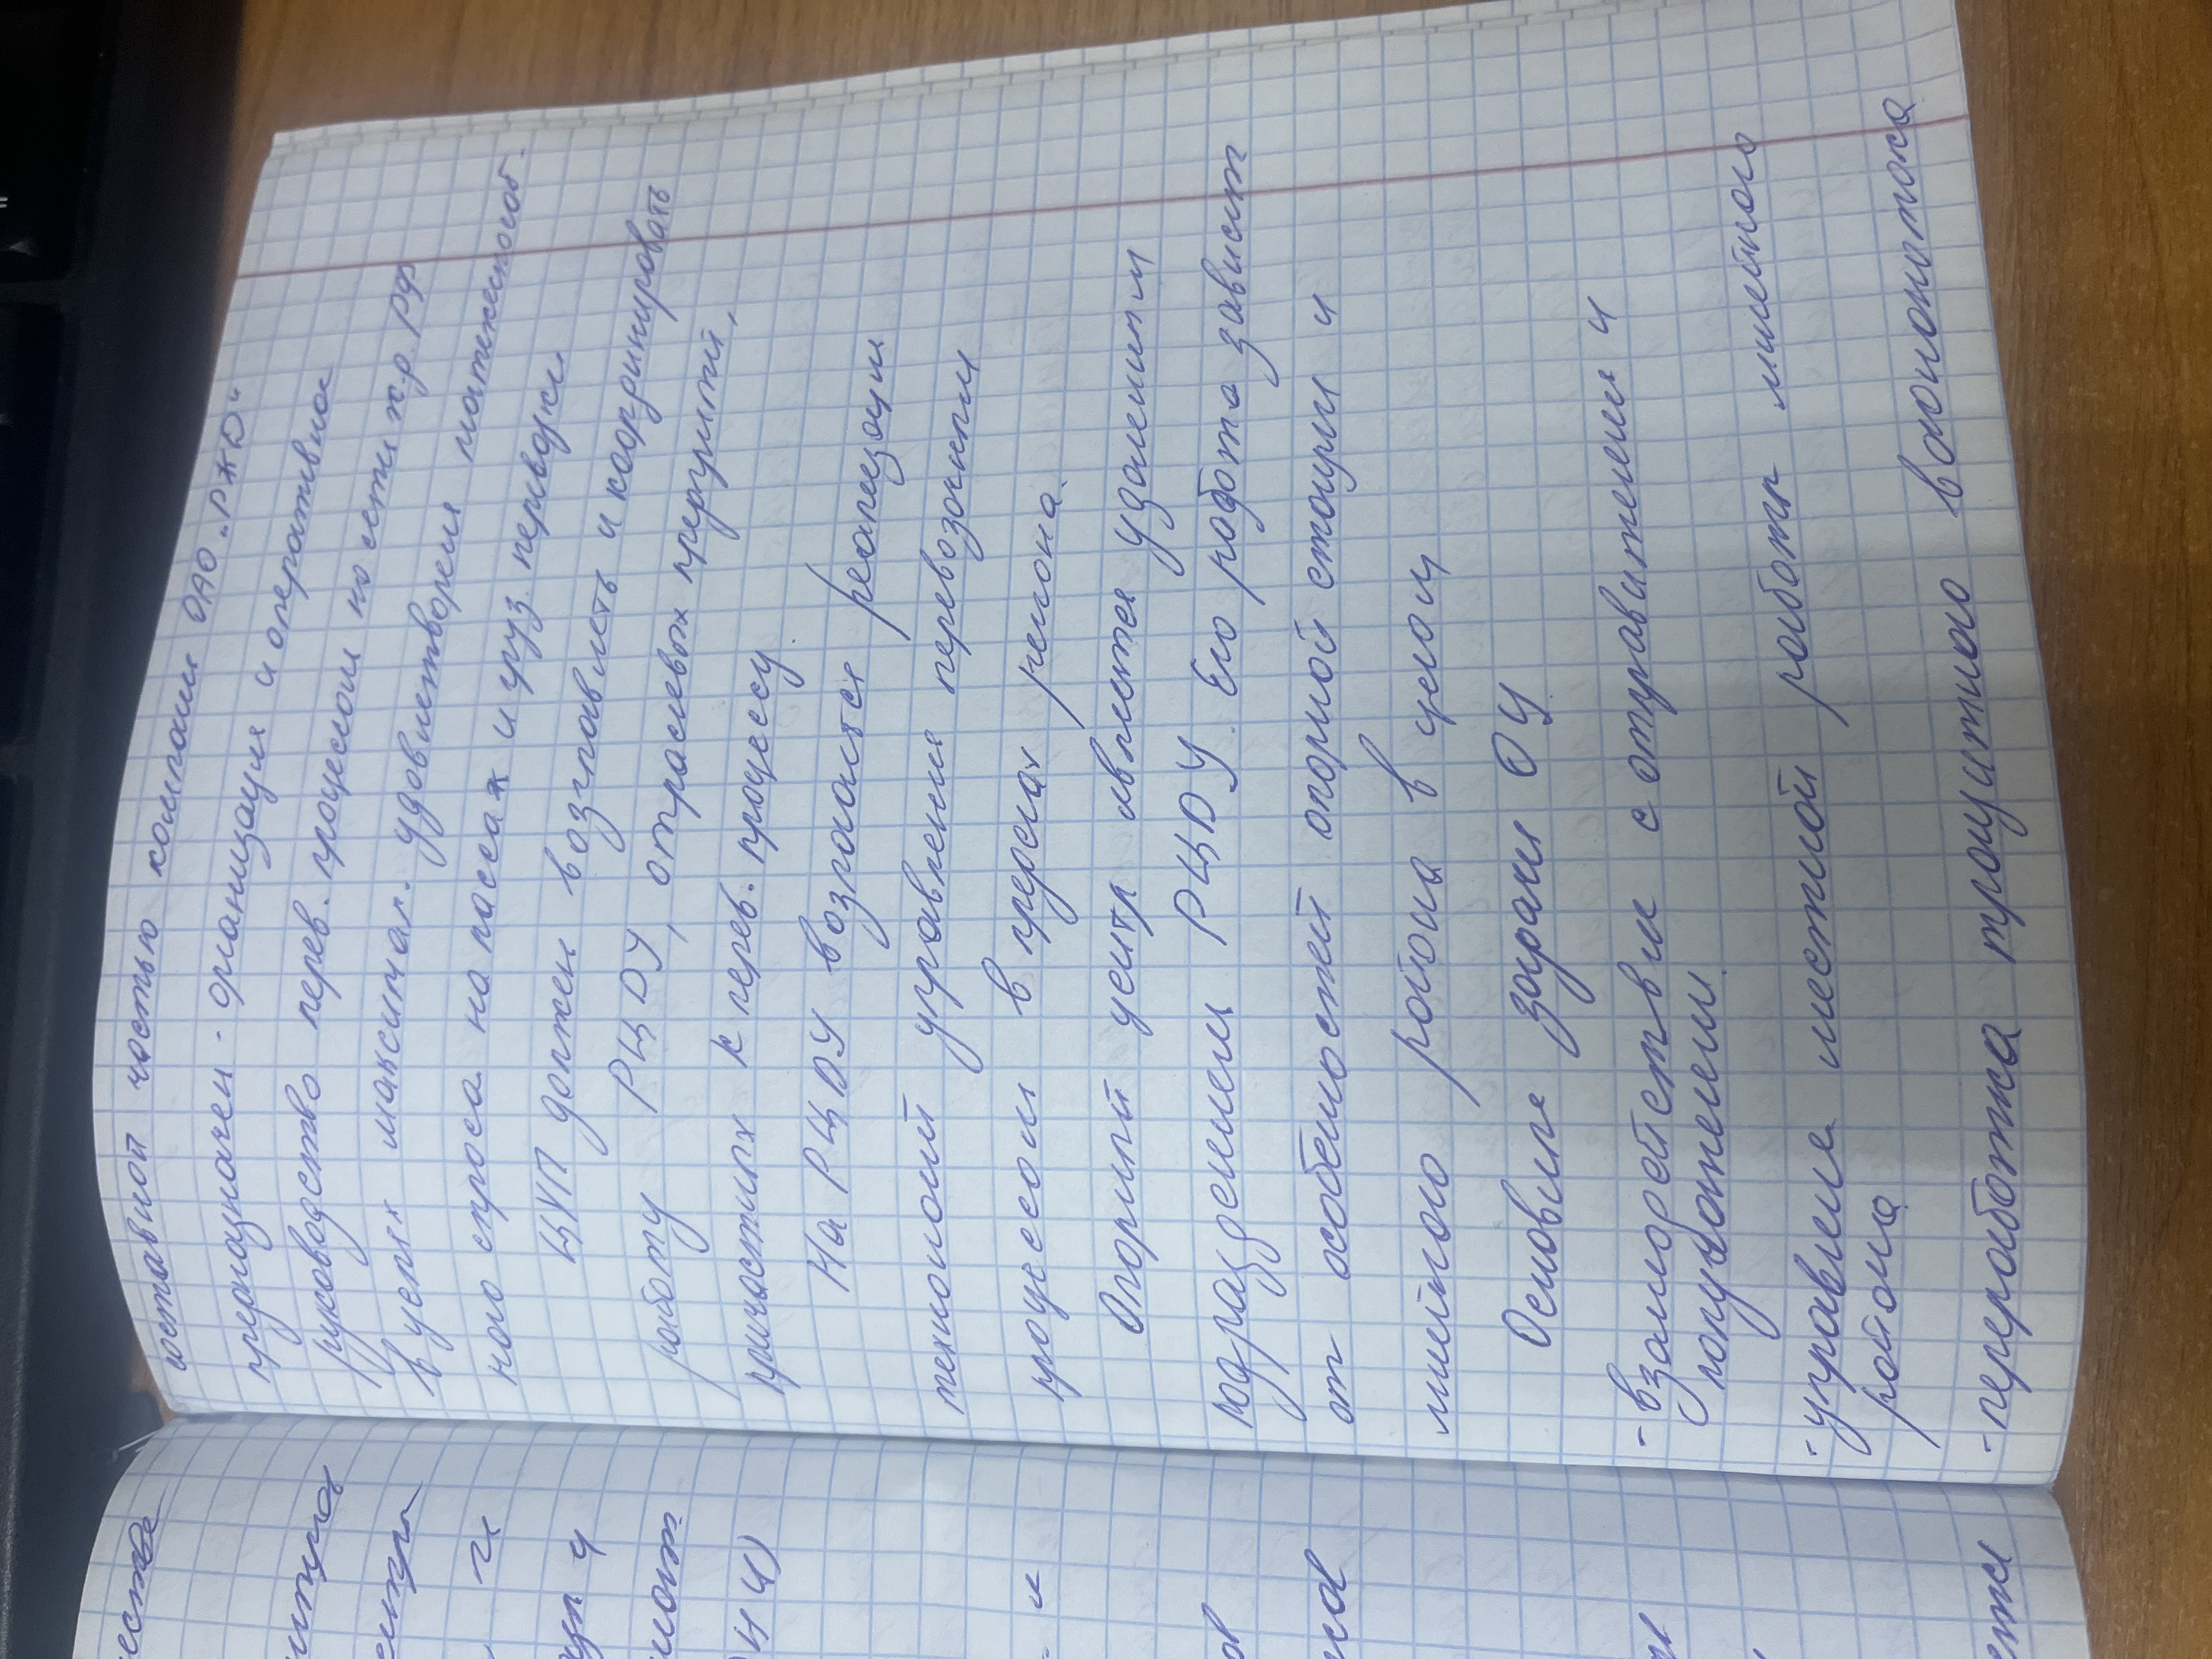 составной частью компании ОАО „РЖД“
предназначен - организация и оперативное
руководство перев. процессом на сети ж.д. РФ
в целях максимал. удовлетворения платежеспособ-
ного спроса на пассаж и груз. перевозки
ЦУП должен возглавлять и координировать
работу РЦДУ, отраслевых предприятий,
причастных к перев. процессу.
На РЦДУ возлагается реализация
технологий управления перевозочным
процессом в пределах региона.
Опорный центр является удаленным
подразделением РЦДУ. Его работа зависит
от особенностей опорной станции и
линейного района в целом
Основные задачи ОЦ
- взаимодействие с отправителями и
получателями.
- управление местной работы линейного
района
- переработка транзитного вагонопотока